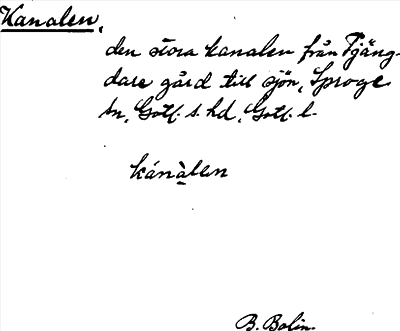 Kanalen,
den stora kanalen från Tjäng-
dare gård till sjön, Sproge
sn, Gotl. s. hd, Gotl. l.
kánàlen
B. Bolin.